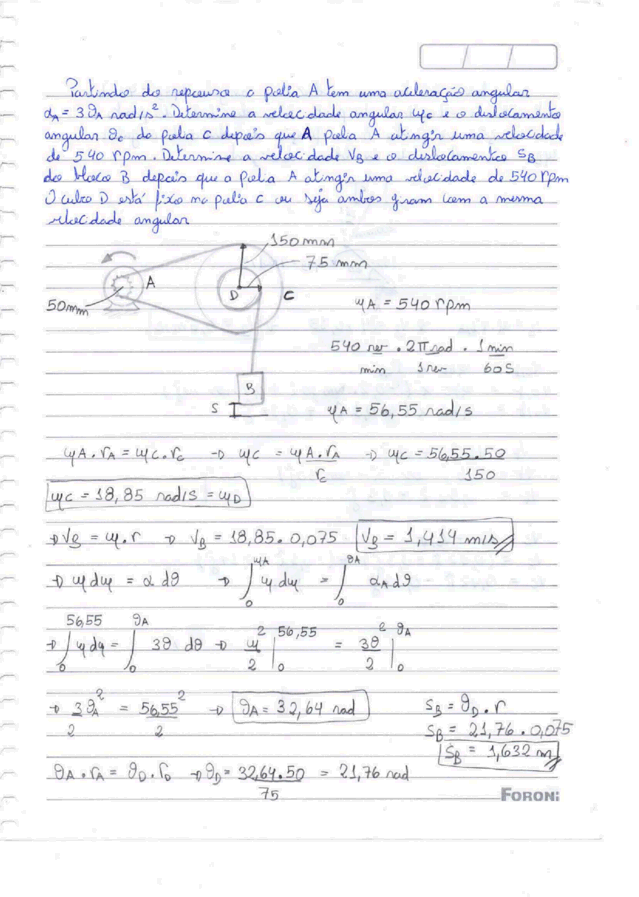 Partindo do repouso a polia A tem uma aceleração angular
αA = 3θA rad/s². Determine a velocidade angular ωc e o deslocamento
angular θc da polia C depois que A polia A atingir uma velocidade
de 540 rpm. Determine a velocidade VB e o deslocamento SB
do bloco B depois que a Polia A atingir uma velocidade de 540 rpm
O cubo D está fixo na polia C ou seja ambos giram com a mesma
velocidade angular
150mm
75 mm
A
D
C
50mm
B
S
ωA = 540 rpm
540 rev . 2π rad . 1 min
min 1 rev 60 S
ωA = 56,55 rad/s
ωA . rA = ωC . rC → ωC = ωA . rA → ωC = 56,55 . 50
rC 150
ωC = 18,85 rad/s = ωD
→ VB = ω . r → VB = 18,85 . 0,075 VB = 1,414 m/s
→ ω dω = α dθ → ∫₀^ωA ω dω = ∫₀^θA αA dθ
→ ∫₀^56,55 ω dω = ∫₀^θA 3θ dθ → ω²/2 |₀^56,55 = 3θ²/2 |₀^θA
→ 3θA²/2 = 56,55²/2 → θA = 32,64 rad
SB = θD . r
SB = 21,76 . 0,075
SB = 1,632 m
θA . rA = θD . rD → θD = 32,64 . 50 = 21,76 rad
75
FORONI